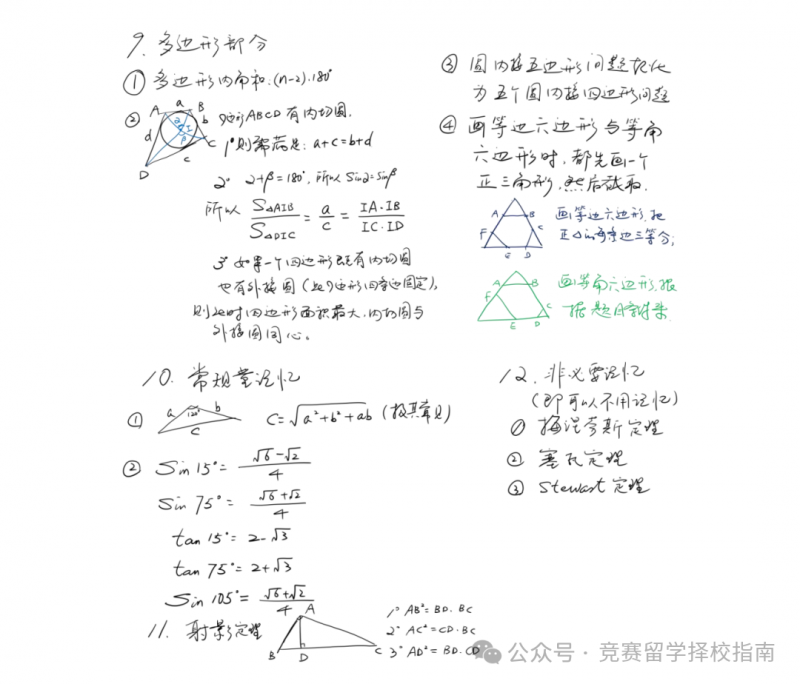 9. 多边形部分
① 多边形内角和:(n-2)·180°
② 四边形ABCD有内切圆.
A a B
b
d I
α
β
c C
D
1° 则需满足: a+c=b+d
2° α+β=180°, 所以 Sinα=Sinβ
所以 S△AIB/S△DIC = a/c = IA·IB/IC·ID
3° 如果一个四边形既有内切圆
也有外接圆(此四边形四条边固定),
则此时四边形面积最大,内切圆与
外接圆同心。
③ 圆内接五边形问题转化
为五个圆内接四边形问题
④ 画等边六边形与等角
六边形时, 都先画一个
正三角形, 然后截取.
A B
F C
E D
画等边六边形, 把
正△的每条边三等分;
A B
F C
E D
画等角六边形, 根
据题目
10. 常规需记忆
① a 120° b
c
C=√a²+b²+ab (极其常见)
② Sin 15°= √6-√2/4
Sin 75°= √6+√2/4
tan 15°= 2-√3
tan 75°= 2+√3
Sin 105°= √6+√2/4
11. 射影定理
A
B D C
1° AB²=BD·BC
2° AC²=CD·BC
3° AD²=BD·CD
12. 非必要记忆
(即可以不用记忆)
① 梅涅劳斯定理
② 塞瓦定理
③ Stewart定理
公众号·竞赛留学择校指南